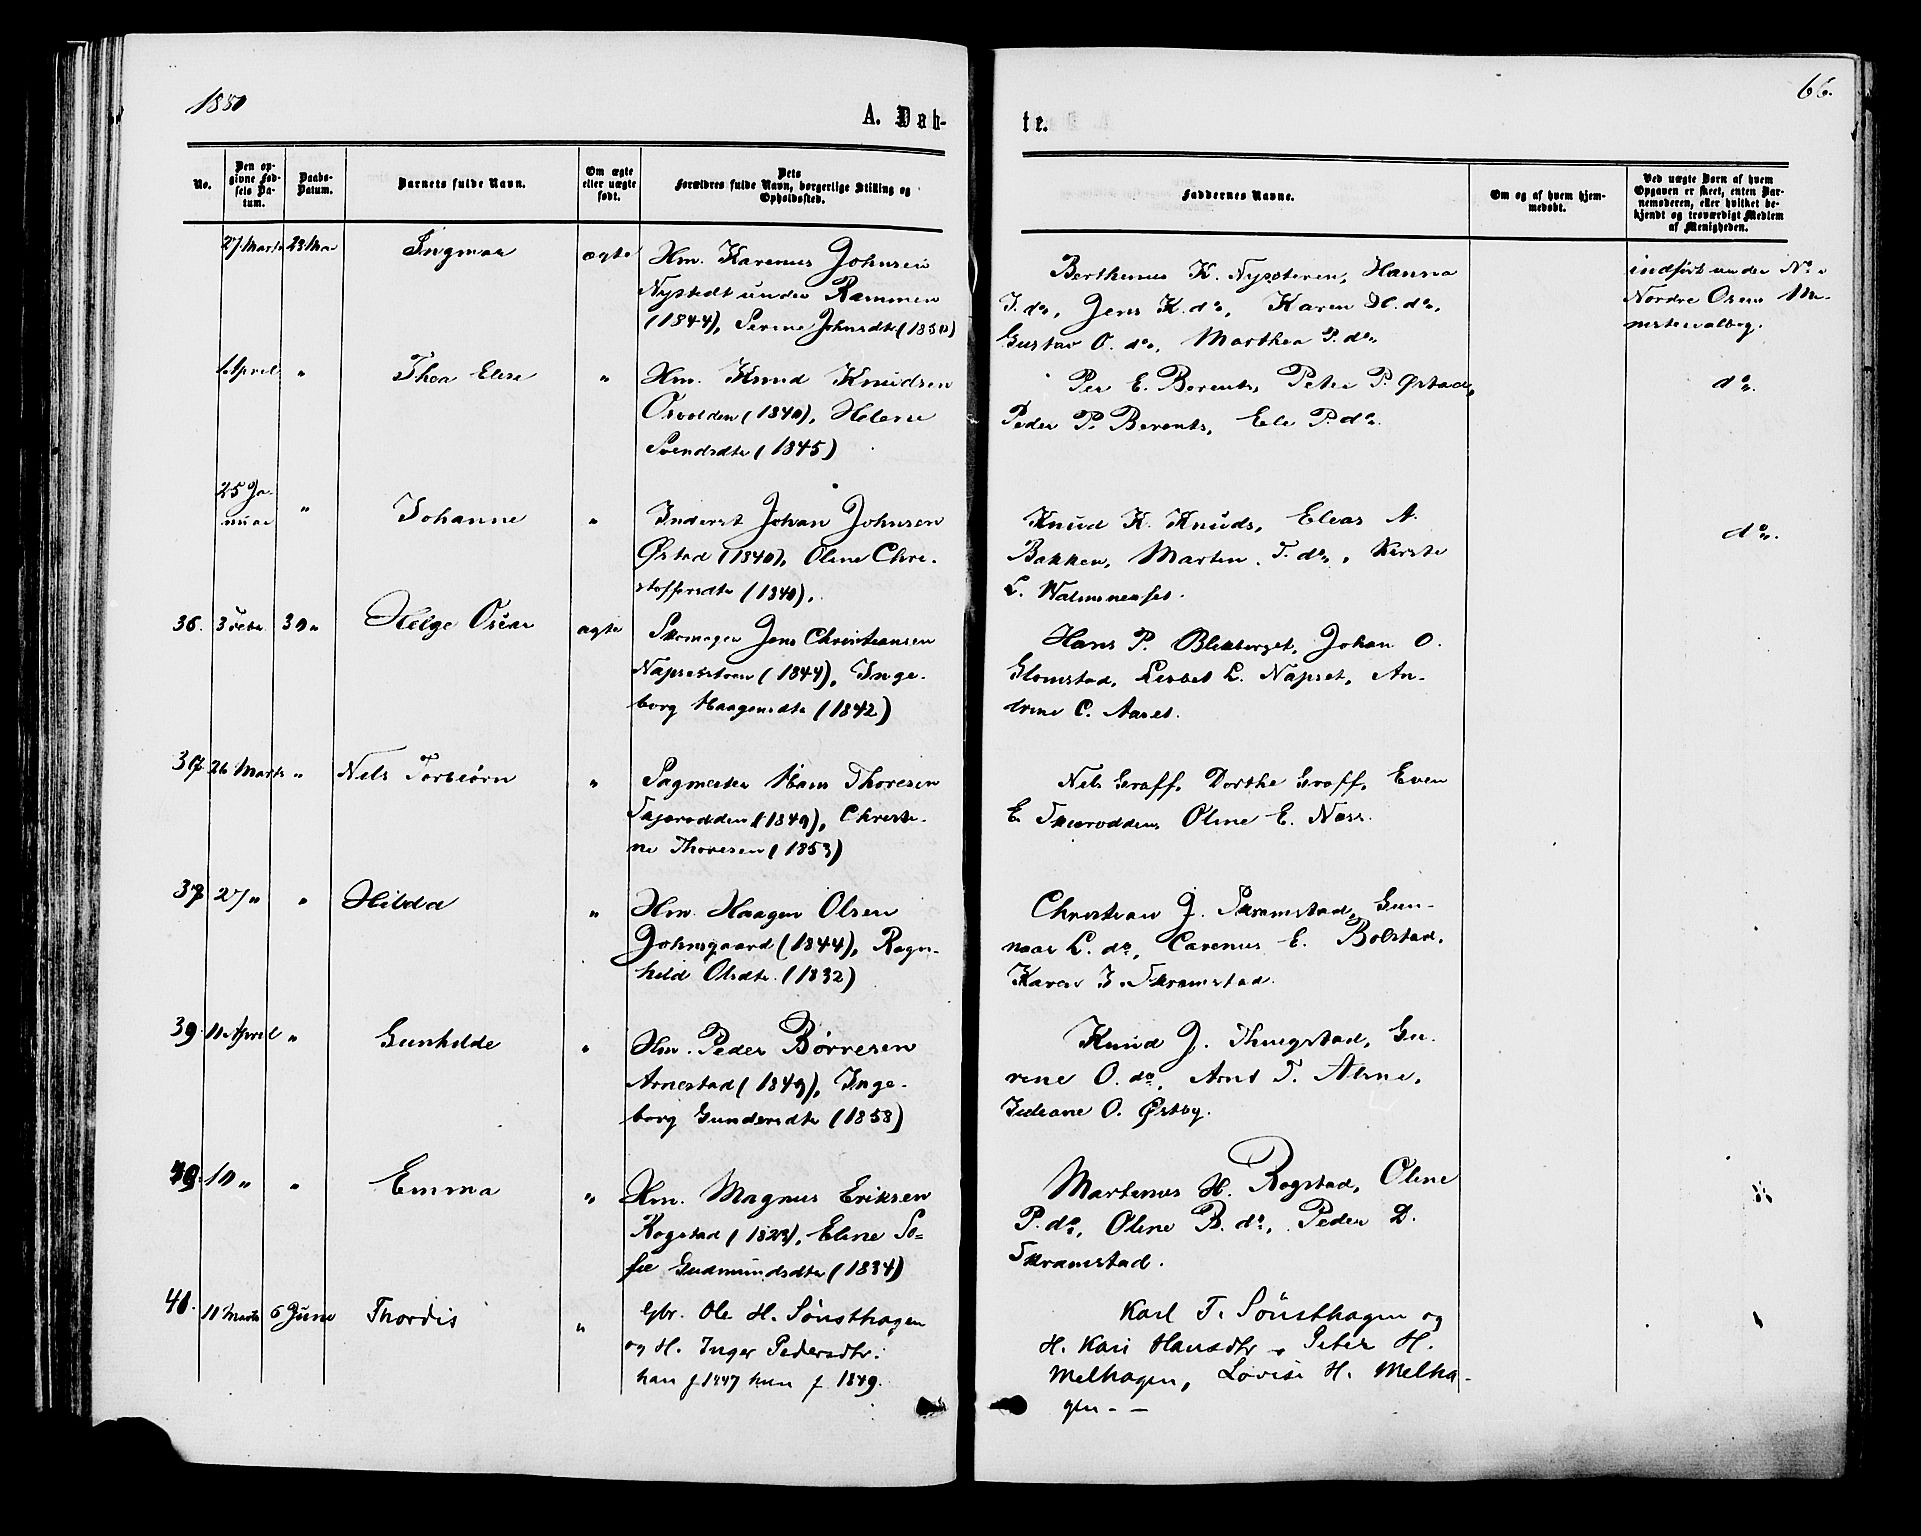 1880
66.
A. Døb-
te.
No.
Den op-
givne Fød-
sels Da-
tum.
Daabs-
Datum.
Barnets fulde Navn.
Om ægte
eller uægte
født.
Dets
Forældres fulde Navn, borgerlige Stilling og
Opholdssted.
Faddernes Navne.
Om og af hvem hjem-
medøbt.
Ved uægte Børn af hvem
Opgaven er skeet, enten Bar-
nemoderen, eller hvilket be-
kjendt og troværdigt Medlem
af Menigheden.
27 Marts 23 Mai Ingmar ægte Hm. Karenus Johnsen
Nystedt under Rammen
(1844), Serine Johnsdtr (1850)
Berthinus K. Nysæteren, Hanna
J. do, Jens K. do, Karen H. do,
Gustav O. do, Marthea P. do
indført under No
Nordre Osens Mi-
nisterialbog.
April " Thea Elise " Hm. Knud Knudsen
Osvolden (1840), Helene
Svendsdtr (1845)
Per E. Berents, Peter P. Østad,
Peder P. Berents, Eli P. do.
do.
25 Ja-
nuar " Johanne " Inderst Johan Johnsen
Østad (1840), Oline Chri-
stoffersdtr (1840).
Knud K. Knuds, Elias A.
Bakken, Martin T. do, Kirsti
L. Walmenæset.
do.
36. 3 Febr. 30 " Helge Oscar ægte Skomager Jens Christiansen
Napsetstuen (1844), Inge-
borg Haagensdtr (1842)
Hans P. Blikberget, Johan O.
Glomstad, Lisbet L. Napset, An-
drine C. Aaset.
37 26 Marts " Nels Torbiørn " Sagmester Hans Thoresen
Skjærodden (1849), Christi-
ne Thoresen (1853)
Nils Graff, Dorthe Graff, Even
E. Skjærodden, Oline E. Næss.
38 27 " " Hilda " Hm. Haagen Olsen
Johnsgaard (1844), Ragn-
hild Olsdtr. (1832)
Christian J. Skramstad, Gun-
naar L. do, Carenus E. Bolstad,
Karen J. Skramstad.
39 11 April " Gunhilde " Hm. Peder Børresen
Arnestad (1849), Inge-
borg Gundersdtr (1858)
Knud J. Thingstad, Gu-
rine O. do, Arnt T. Alme,
Juliane O. Østby.
40. 10 " " Emma " Hm. Magnus Eriksen
Rogstad (1823), Eline So-
fie Gudmundsdtr (1834)
Martinus H. Rogstad, Oline
P. do, Oline B. do, Peder D.
Skramstad.
41. 11 Marts 6 Juni Thordis " Gbr. Ole H. Sönsthagen
og H. Inger Pedersdtr:
han f 1847 hun f 1849.
Karl T. Sönsthagen og
H. Kari Hansdtr, Peter H.
Melhagen, Lovise H. Melha-
gen. -